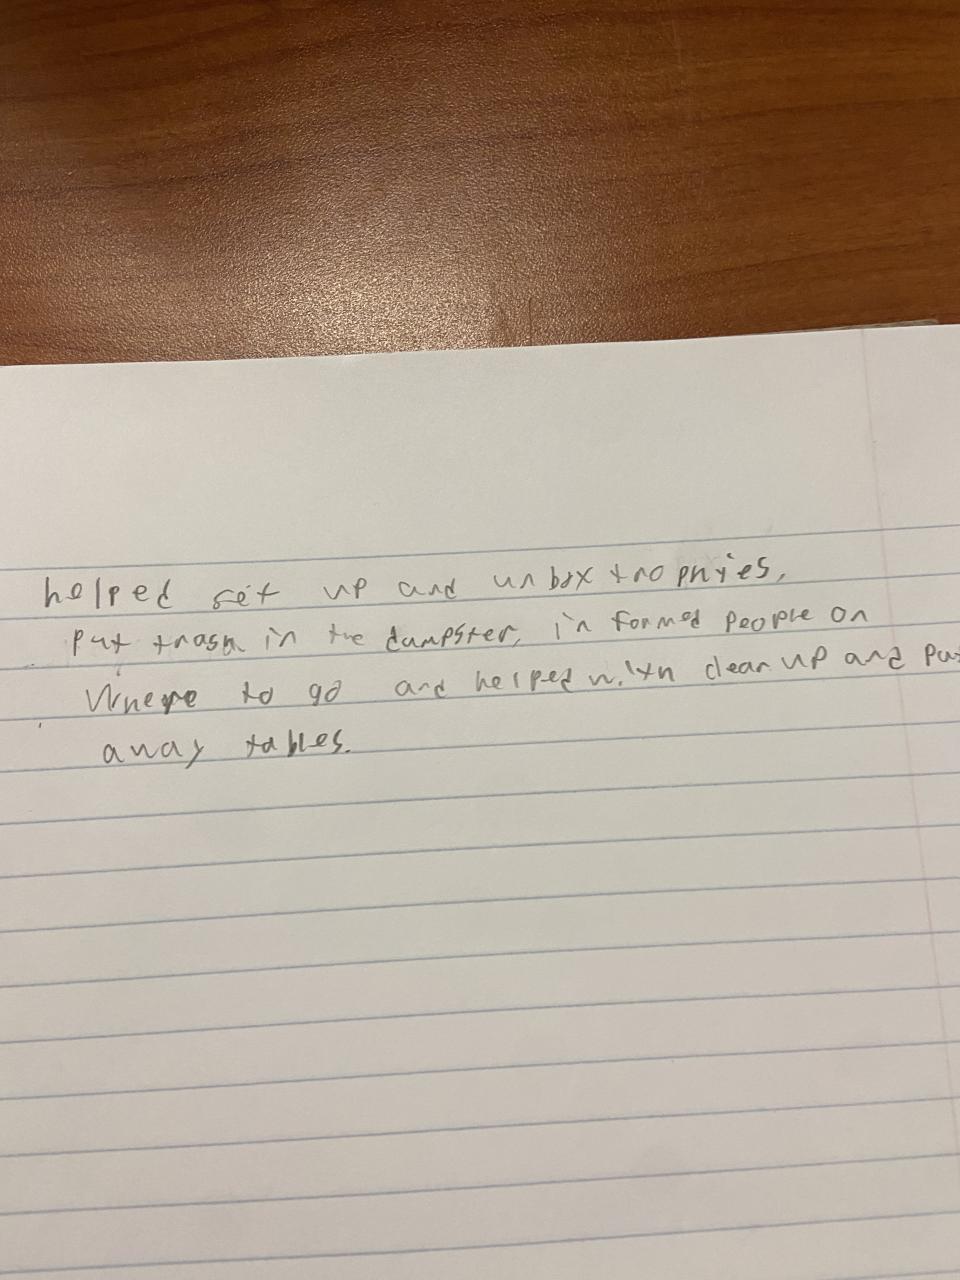 helped set up and unbox trophies,
put trash in the dumpster, informed people on
Where to go and helped with clean up and pu
away tables.